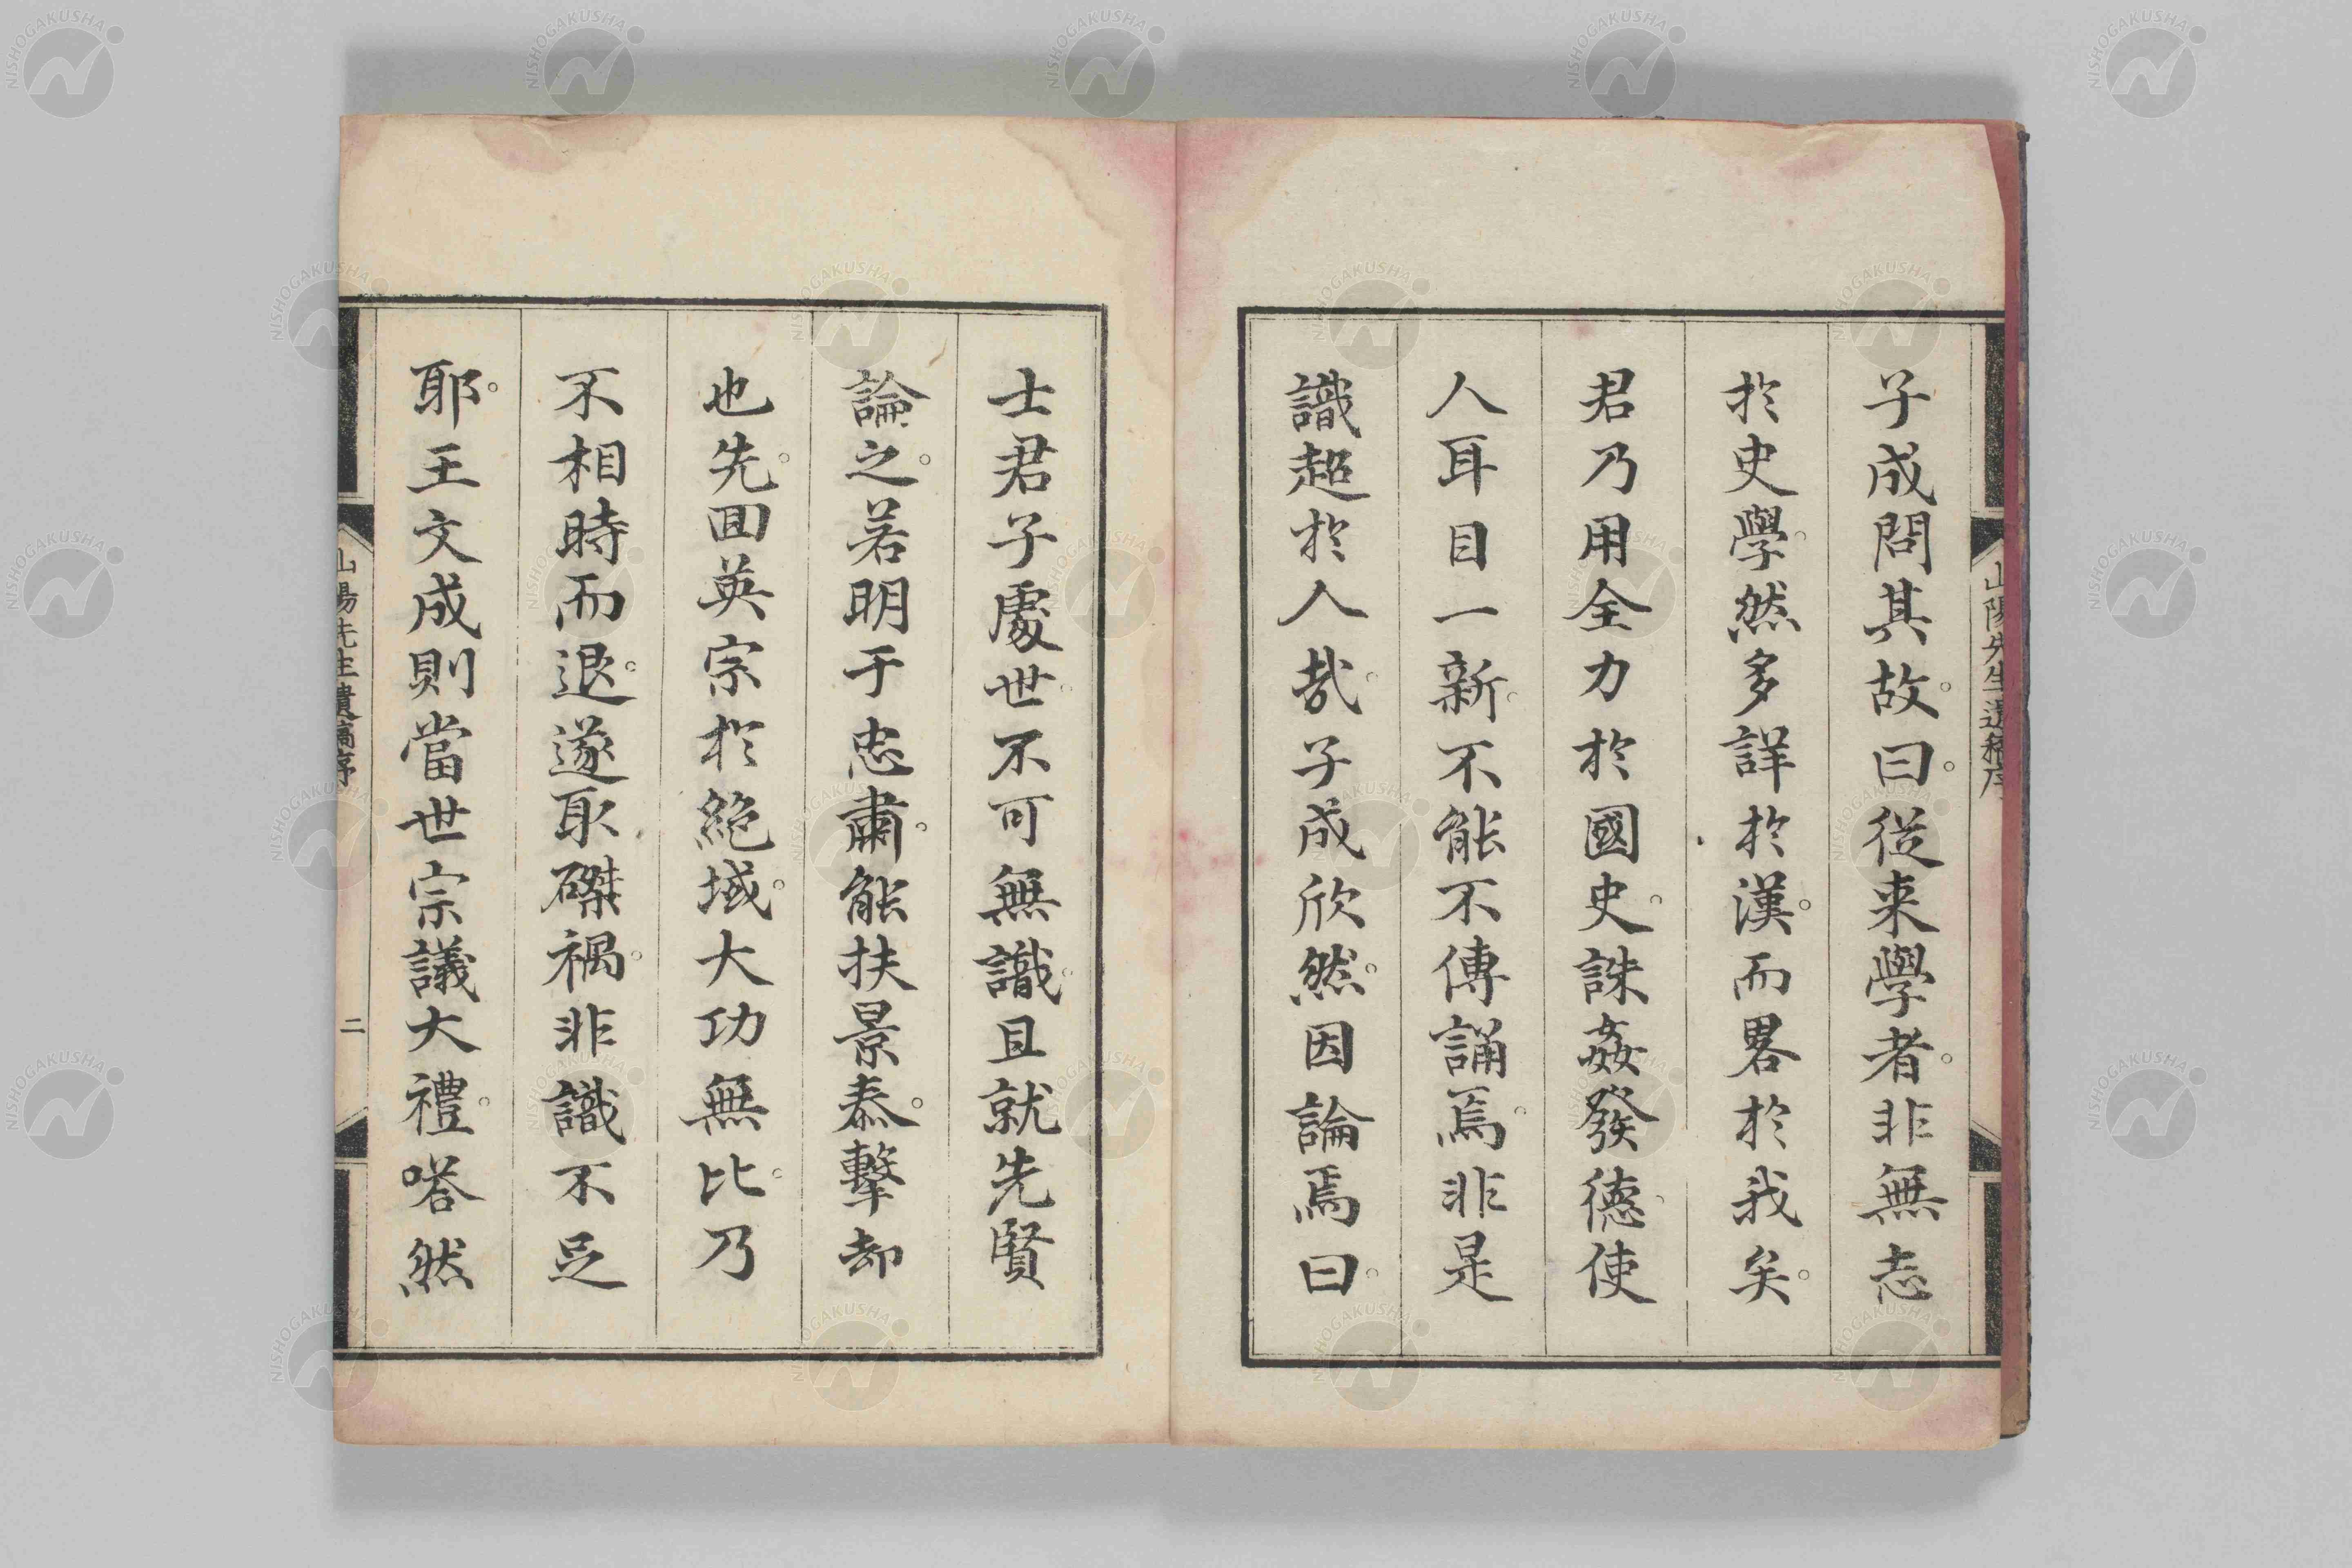 子成問其故。曰。從来學者。非無志
於史學。然多詳於漢。而畧於我矣。
君乃用全力於國史。誅姦發德。使
人耳目一新。不能不傳誦焉。非是
識超於人哉。子成欣然。因論焉曰。
士君子處世。不可無識。且就先賢
論之。若明于忠肅。能扶景泰。擊却
也先。回英宗於絶域。大功無比。乃
不相時而退。遂取磔禍。非識不足
耶。王文成則當世宗議大禮。嗒然
山陽先生遺稿序
山陽先生遺稿序
二
NISHOGAKUSHA